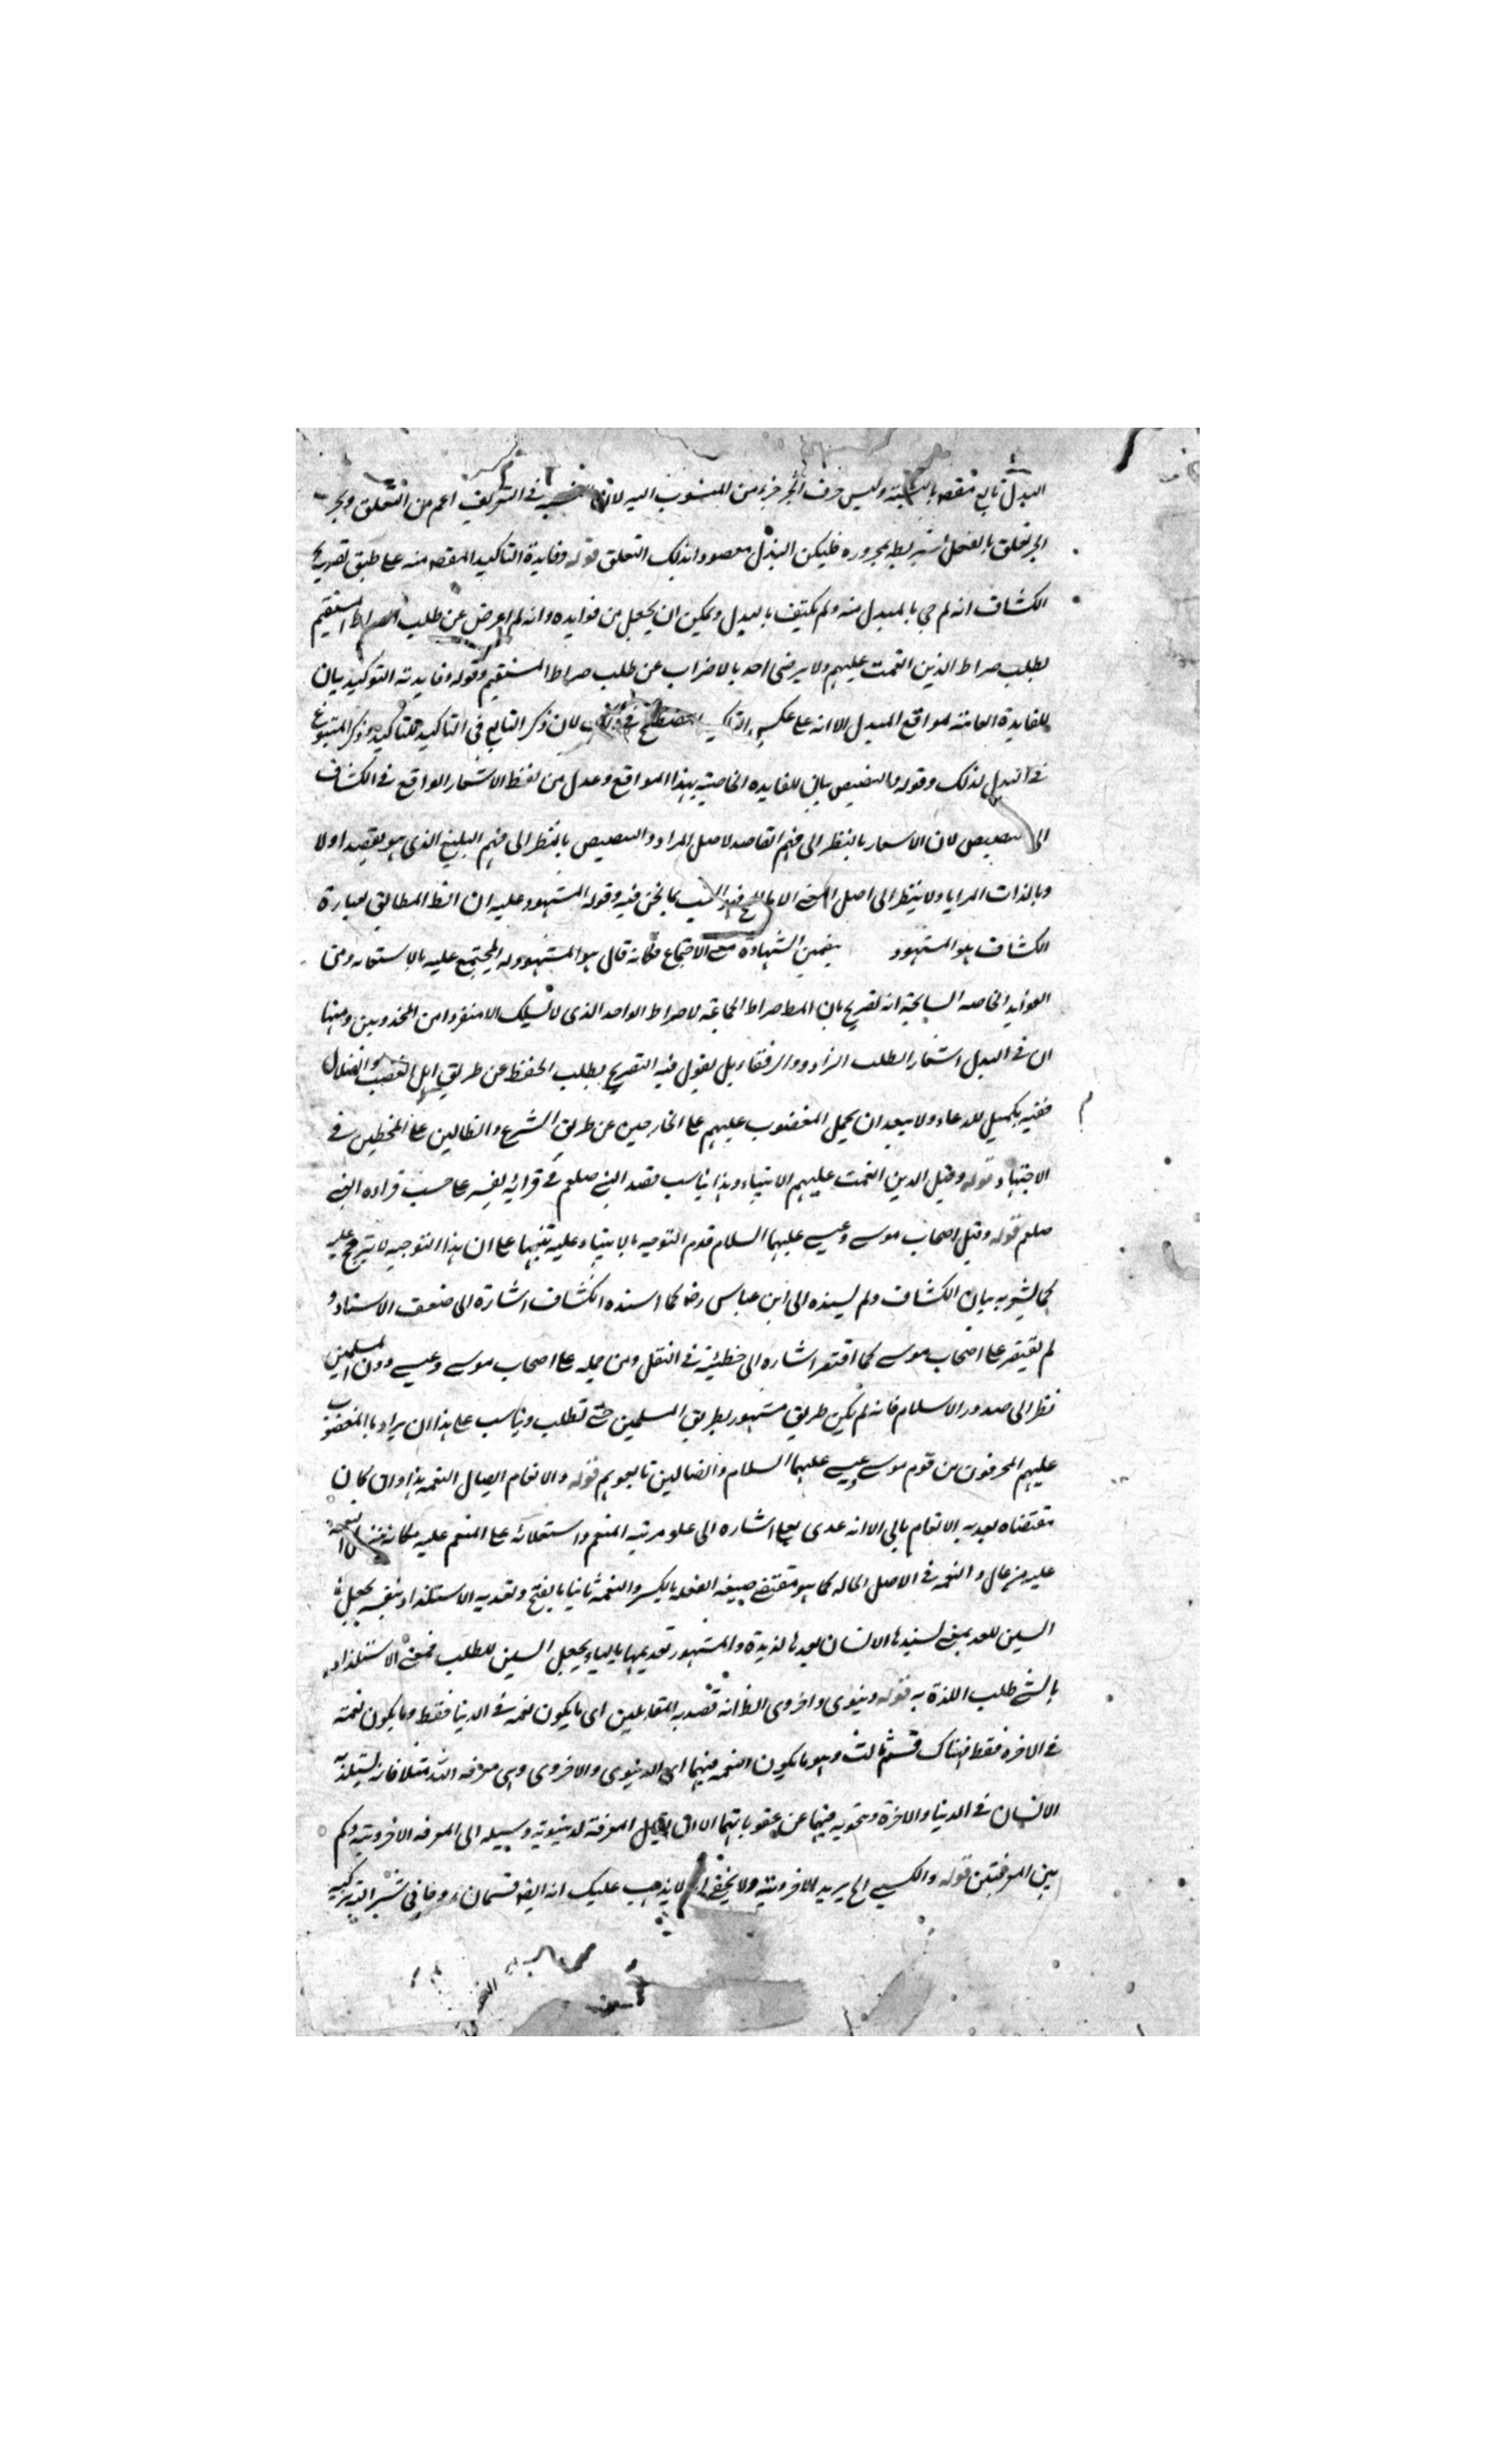 البدل تابع مقصه بالنسبة وليس حرف الجر جزء من المنسوب اليه لان النسبة في التعريف اعم من التعلق وبحر
الجر تعلق بالفعل بمجروره فليكن البدل مقصودا بذلك التعلق قوله وفايدة التاكيد المقصه منه على طبق تصريح
الكشاف انه لم جي بالمبدل منه ولم يكتف بالبدل ويمكن ان يجعل من فوايده وانه لم اعرض عن طلب الصراط المستقيم
بطلب صراط الذين انعمت عليهم ولا يرضى احد بالاضراب عن طلب صراط المستقيم وقوله وفايدته التوكيد بيان
للفايدة العامة لمواقع البدل الا انه على عكس التاكيد المصطلح في ذلك لان ذكر التابع في التاكيد للتاكيد وذكر المتبوع
في البدل لذلك وقوله والتنصيص بيان للفايده الخاصة بهذا المواقع وعدل من لفظ الاشعار الواقع في الكشاف
الى التنصيص لان الاشعار بالنظر الى فهم القاصد لاصل المراد والتنصيص بالنظر الى فهم البليغ الذي هو يقصد اولا
وبالذات المزايا ولا ينظر الى اصل المعنى الا بالتبع كما نحن فيه وقوله المشهود عليه ان الظ المطابق لعبارة
الكشاف هو المشهود بتضمين الشهادة معنى الاجتماع فكانه قال هو المشهود له المجتمع عليه بالاستقامه ومن
الفوايد الخاصه السانحة انه تصريح بان المط صراط الجماعة لا صراط الواحد الذي لا يسلك الا منفردا من المجذوبين ومنها
ان في البدل اشعار الطلب الزاد والرفقاء بل نقول فيه التصريح بطلب الحفظ عن طريق اهل الغضب والضلال
ففيه تكميل للدعاء ولا يبعد ان يحمل المغضوب عليهم على الخارجين عن طريق الشرع والضالين على المخطين في
الاجتهاد قوله وقيل الذين انعمت عليهم الانبياء وهذا يناسب مقصد النبي صلعم في قرائة لنفسه على حسب قراءه النبي
صلعم قوله وقيل اصحاب موسى وعيسى عليهما السلام قدم التوجيه بالانبياء عليه تنبيها على ان هذا التوجيه لا يترجح عليه
كما يشعر به بيان الكشاف ولم يسنده الى ابن عباس رض كما اسنده الكشاف اشارة الى ضعف الاسناد و
لم يقتصر على اصحاب موسى كما اقتصر اشاره الى خطيئة في النقل ومن حمله على اصحاب موسى وعيسى دون المسلمين
نظر الى صدور الاسلام فانه لم يكن طريق مشهور بطريق المسلمين حتى تطلب ويناسب على هذا ان يراد بالمغضوب
عليهم المحرفون من قوم موسى وعيسى عليهما السلام والضالين تابعوهم قوله والانعام ايصال النعمه هذا وان كان
مقتضاه تعديه الانعام بالى الا انه عدى بعلى اشاره الى علو مرتبه المنعم واستعلائه على المنعم عليه فكانه تنزل النعمة
عليه من عال والنعمه في الاصل الحاله كما هو مقتضى صيغه الفعله بالكسر والنعمة ثانيا بالفتح وتعديه الاستلذاذ بنفسه بجعل
السين للعد بمعنى يستلذها الانسان يعدها لذيذة والمشهور تعديتها بالباء بجعل السين للطلب فمعنى الاستلذاذ
بالشي طلب اللذة به قوله دنيوى واخروى الظ انه قصد به المتقابلين اى ما يكون نعمه في الدنيا فقط وما يكون نعمة
في الاخره فقط فهناك قسم ثالث وهو ما يكون النعمه فيهما اى الدنيوى والاخروى وهى معرفه الله مثلا فانه يستلذه
الانسان في الدنيا والاخرة وتنجويه فيهما عن عقوباتهما الا ان يقال المعرفة الدنيوية وسيله الى المعرفه الاخروية وكم
بين المعرفتين قوله والكسبى الخ يريد الاخروية ولا يخفى لا يذهب عليك انه ايضا قسمان روحانى